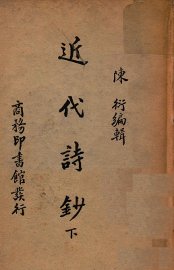 陳衍編輯
近代詩鈔
下
商務印書館發行